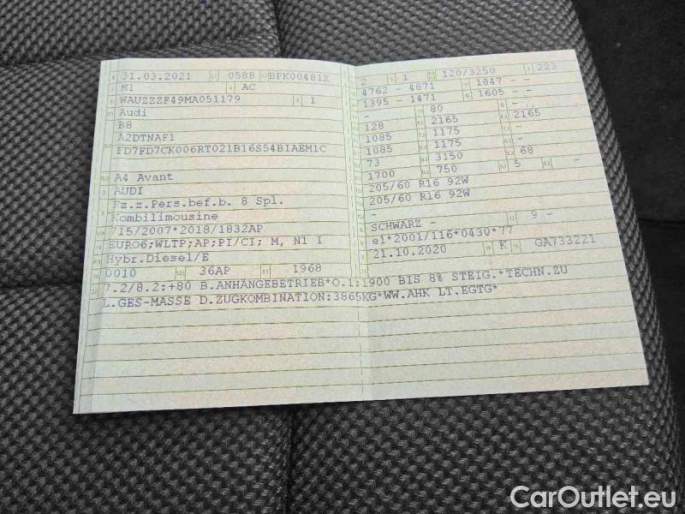 31.03.2021 0588 BPK00481X
M1 AC
WAUZZZF49MA051179 1
Audi
B8
A2DTNAF1
FD7FD7CK006RT021B16S54BIAEM1C
A4 Avant
AUDI
Fz.z.Pers.bef.b. 8 Spl.
Kombilimousine
715/2007*2018/1832AP
EURO6;WLTP;AP;PI/CI; M, N1 I
Hybr.Diesel/E
0010 36AP 1968
7.2/8.2:+80 B.ANHANGEBETRIEB*O.1:1900 BIS 8% STEIG.*TECHN.ZU
L.GES-MASSE D.ZUGKOMBINATION:3865KG*WW.AHK LT.EGTG*
2 1 120/3250 223
4762 - 4871 1847 - -
1395 - 1471 1605 - -
- 80
128 2165 2165
1085 1175 -
1085 1175 -
73 3150 68
1700 750 5 -
205/60 R16 92W
205/60 R16 92W
-
-
SCHWARZ - 9 -
e1*2001/116*0430*77
21.10.2020 K QA733221
CarOutlet.eu